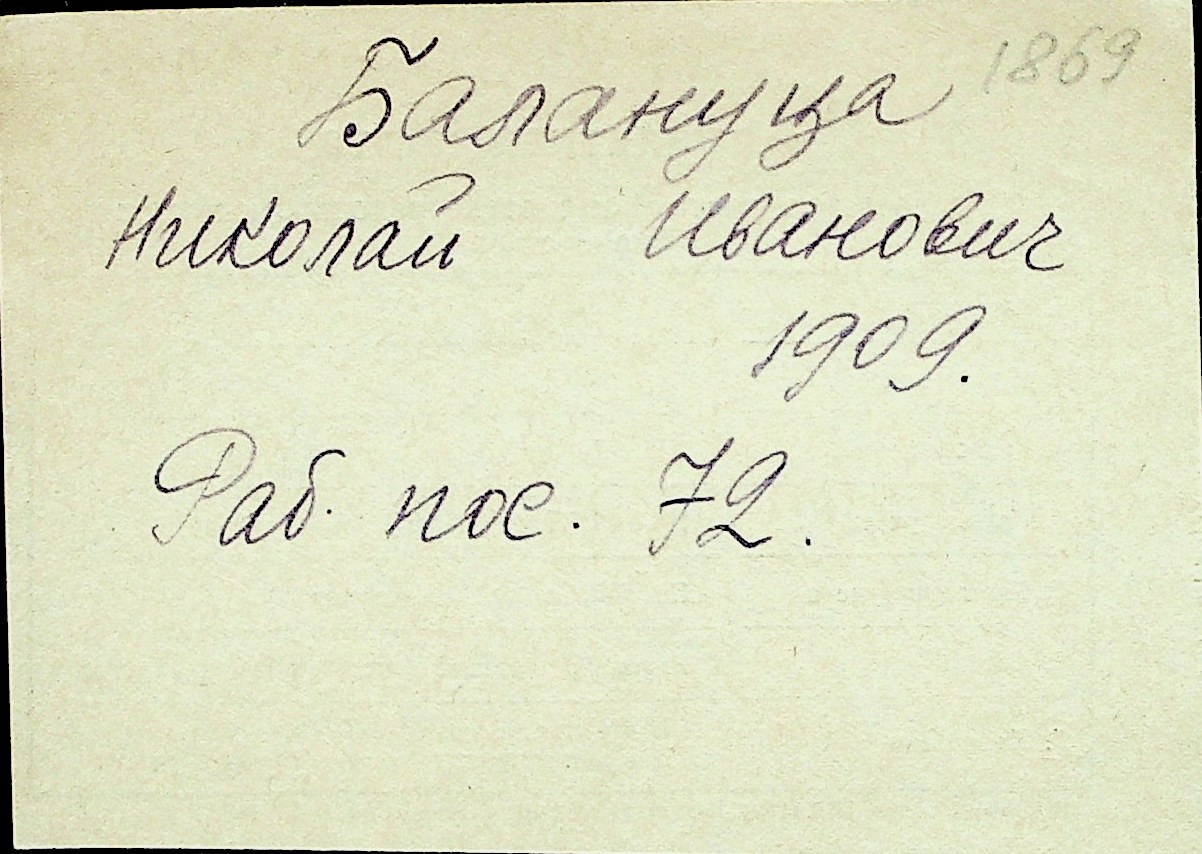 1869
Балануца
Николай Иванович
1909.
Раб. пос. 72.